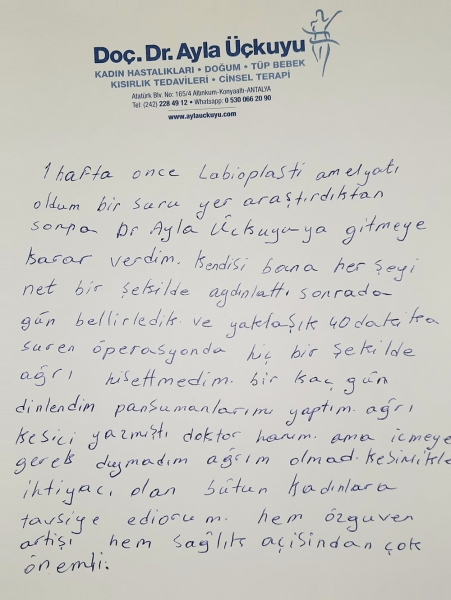 Doç. Dr. Ayla Üçkuyu
KADIN HASTALIKLARI • DOĞUM • TÜP BEBEK
KISIRLIK TEDAVİLERİ • CİNSEL TERAPİ
Atatürk Blv. No: 165/4 Altınkum-Konyaaltı-ANTALYA
Tel: (242) 228 49 12 • Whatsapp: 0 530 066 20 90
www.aylauckuyu.com
1 hafta once Labioplasti amelyatı
oldum bir suru yer araştırdıktan
sonra Dr Ayla Ückuyu ya gitmeye
karar verdim. Kendisi bana her şeyi
net bir şekilde aydınlattı sonrada
gün bellirledik. ve yaklaşık 40 dakika
suren operasyonda hiç bir şekilde
ağrı hisettmedim. bir kaç gün
dinlendim pansumanlarımı yaptım. ağrı
kesici yazmıştı doktor hanım. ama icmeye
gerek duymadım ağrım olmadı. kesinlikle
ihtiyacı olan bütün kadınlara
tavsiye ediorum. hem özguven
artişi hem sağlık açisindan çok
önemli.